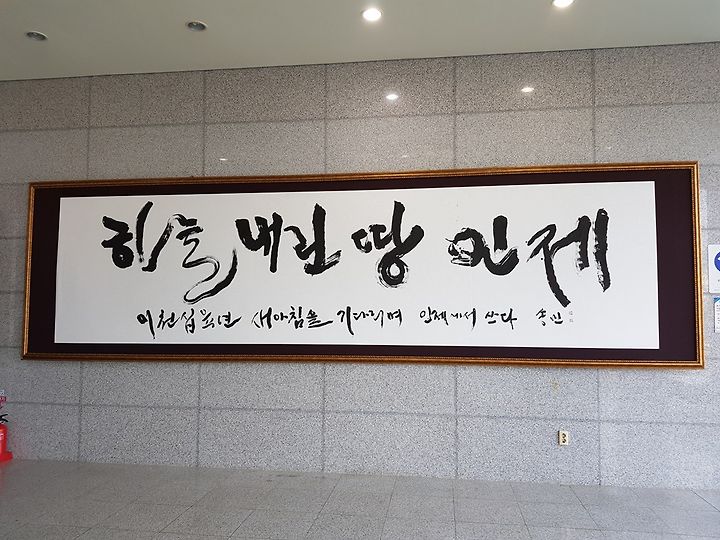 하늘 내린 땅 인제
이천십육년 새아침을 기다리며 인제에서 쓰다